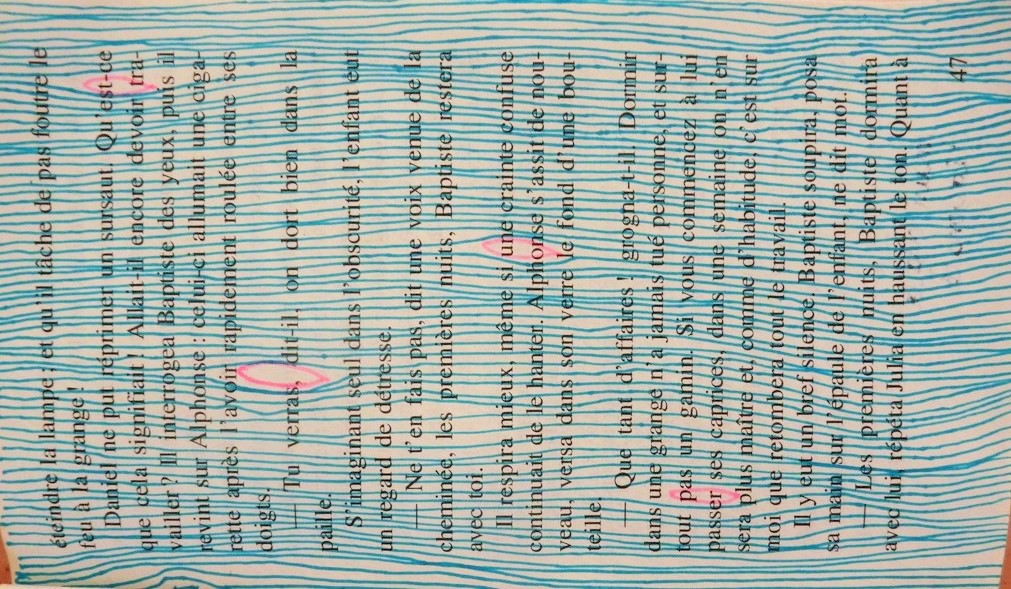 éteindre la lampe ; et qu'il tâche de pas foutre le
feu à la grange !
Daniel ne put réprimer un sursaut. Qu'est-ce
que cela signifiait ! Allait-il encore devoir tra-
vailler ? Il interrogea Baptiste des yeux, puis il
revint sur Alphonse : celui-ci allumait une ciga-
rette après l'avoir rapidement roulée entre ses
doigts.
— Tu verras, dit-il, on dort bien dans la
paille.
S'imaginant seul dans l'obscurité, l'enfant eut
un regard de détresse.
— Ne t'en fais pas, dit une voix venue de la
cheminée, les premières nuits, Baptiste restera
avec toi.
Il respira mieux, même si une crainte confuse
continuait de le hanter. Alphonse s'assit de nou-
veau, versa dans son verre le fond d'une bou-
teille.
— Que tant d'affaires ! grogna-t-il. Dormir
dans une grange n'a jamais tué personne, et sur-
tout pas un gamin. Si vous commencez à lui
passer ses caprices, dans une semaine on n'en
sera plus maître et, comme d'habitude, c'est sur
moi que retombera tout le travail.
Il y eut un bref silence. Baptiste soupira, posa
sa main sur l'épaule de l'enfant, ne dit mot.
— Les premières nuits, Baptiste dormira
avec lui, répéta Julia en haussant le ton. Quant à
47